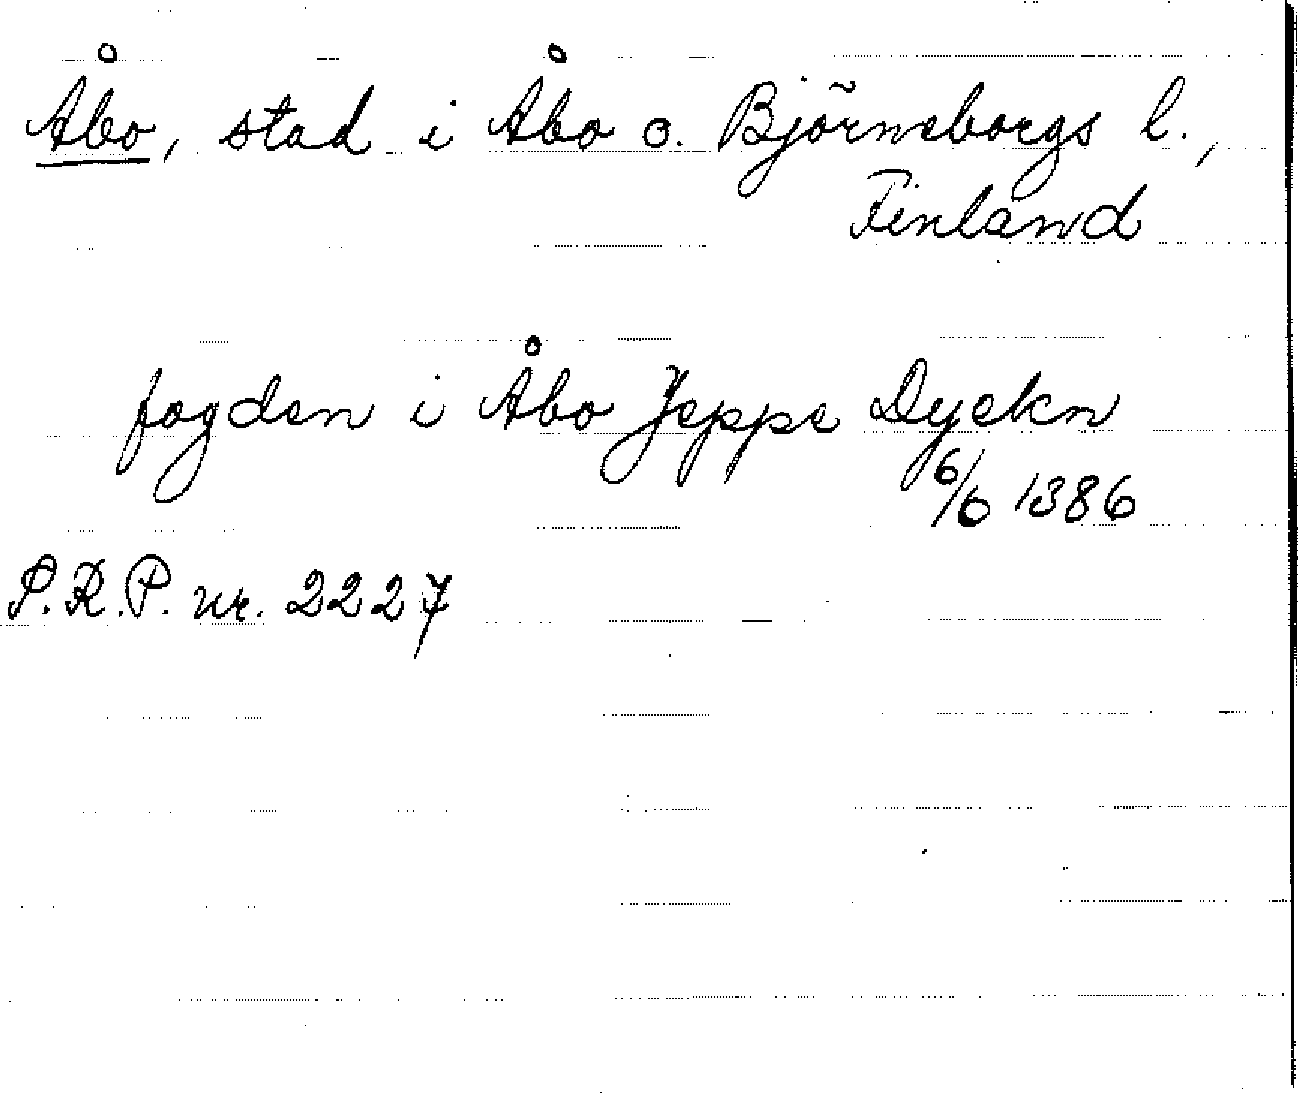 Åbo, stad i Åbo o. Björneborgs l.,
Finland
fogden i Åbo Jeppe Dyekn
6/6 1386
S.R.P. nr. 2227